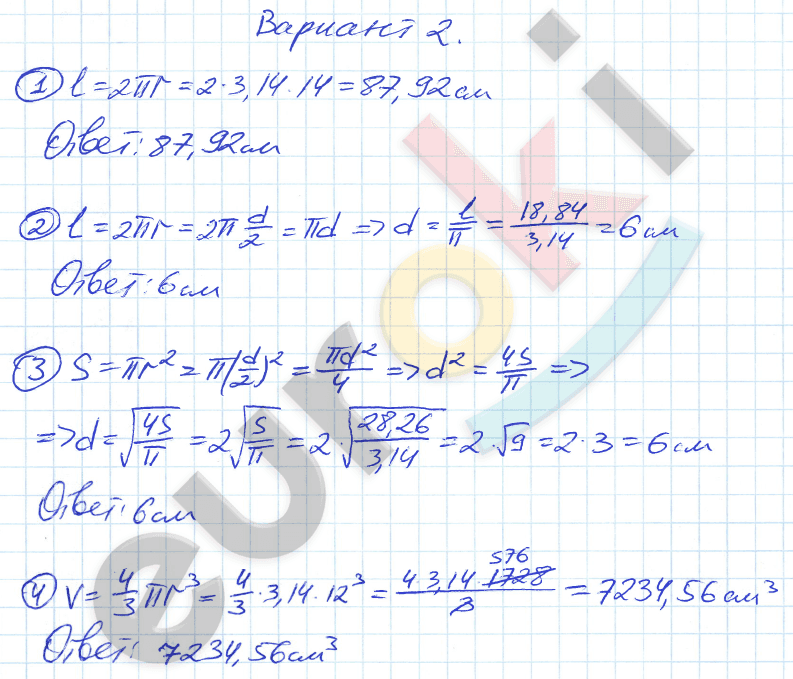 Вариант 2.
① l = 2πr = 2·3,14·14 = 87,92 см
Ответ: 87,92 см
② l = 2πr = 2π d/2 = πd => d = l/π = 18,84/3,14 = 6 см
Ответ: 6 см
③ S = πr² = π(d/2)² = πd²/4 => d² = 4S/π =>
=> d = √(4S/π) = 2√(S/π) = 2·√(28,26/3,14) = 2·√9 = 2·3 = 6 см
Ответ: 6 см
④ V = 4/3 πr³ = 4/3 ·3,14·12³ = 4·3,14·1728/3 576 = 7234,56 см³
Ответ: 7234,56 см³
euroki